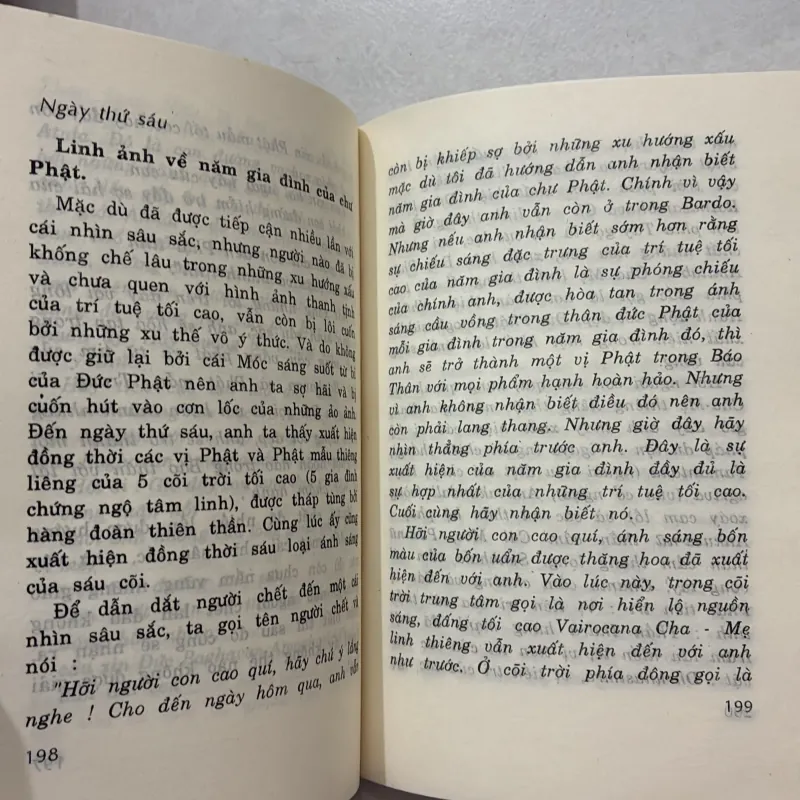 Ngày thứ sáu
Linh ảnh về năm gia đình của chư
Phật.
Mặc dù đã được tiếp cận nhiều lần với
cái nhìn sâu sắc, nhưng người nào đã bị
khống chế lâu trong những xu hướng xấu
và chưa quen với hình ảnh thanh tịnh
của trí tuệ tối cao, vẫn còn bị lôi cuốn
bởi những xu thế vô ý thức. Và do không
được giữ lại bởi cái Móc sáng suốt từ bi
của Đức Phật nên anh ta sợ hãi và bị
cuốn hút vào cơn lốc của những ảo ảnh.
Đến ngày thứ sáu, anh ta thấy xuất hiện
đồng thời các vị Phật và Phật mẫu thiêng
liêng của 5 cõi trời tối cao (5 gia đình
chứng ngộ tâm linh), được tháp tùng bởi
hàng đoàn thiên thần. Cùng lúc ấy cũng
xuất hiện đồng thời sáu loại ánh sáng
của sáu cõi.
Để dẫn dắt người chết đến một cái
nhìn sâu sắc, ta gọi tên người chết và
nói :
"Hỡi người con cao quí, hãy chú ý lắng
nghe ! Cho đến ngày hôm qua, anh vẫn
198
còn bị khiếp sợ bởi những xu hướng xấu
mặc dù tôi đã hướng dẫn anh nhận biết
năm gia đình của chư Phật. Chính vì vậy
mà giờ đây anh vẫn còn ở trong Bardo.
Nhưng nếu anh nhận biết sớm hơn rằng
sự chiếu sáng đặc trưng của trí tuệ tối
cao của năm gia đình là sự phóng chiếu
của chính anh, được hòa tan trong ánh
sáng cầu vồng trong thân đức Phật của
mỗi gia đình trong năm gia đình đó, thì
anh sẽ trở thành một vị Phật trong Báo
Thân với mọi phẩm hạnh hoàn hảo. Nhưng
vì anh không nhận biết điều đó nên anh
còn phải lang thang. Nhưng giờ đây hãy
nhìn thẳng phía trước anh. Đây là sự
xuất hiện của năm gia đình đầy đủ là
sự hợp nhất của những trí tuệ tối cao.
Cuối cùng hãy nhận biết nó.
Hỡi người con cao quí, ánh sáng bốn
màu của bốn uẩn được thăng hoa đã xuất
hiện đến với anh. Vào lúc này, trong cõi
trời trung tâm gọi là nơi hiển lộ nguồn
sáng, đấng tối cao Vairocana Cha - Mẹ
linh thiêng vẫn xuất hiện đến với anh
như trước. Ở cõi trời phía đông gọi là
199